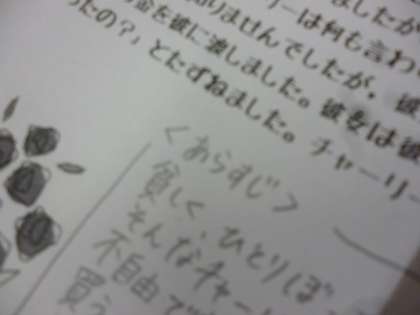 ましたが
リーは何も言わ
りませんでしたが、彼
金を彼に渡しました。彼女は彼
ったの？」とたずねました。チャーリー
＜あらすじ＞
貧しく、ひとりぼ
そんなチャー
不自由で
買う